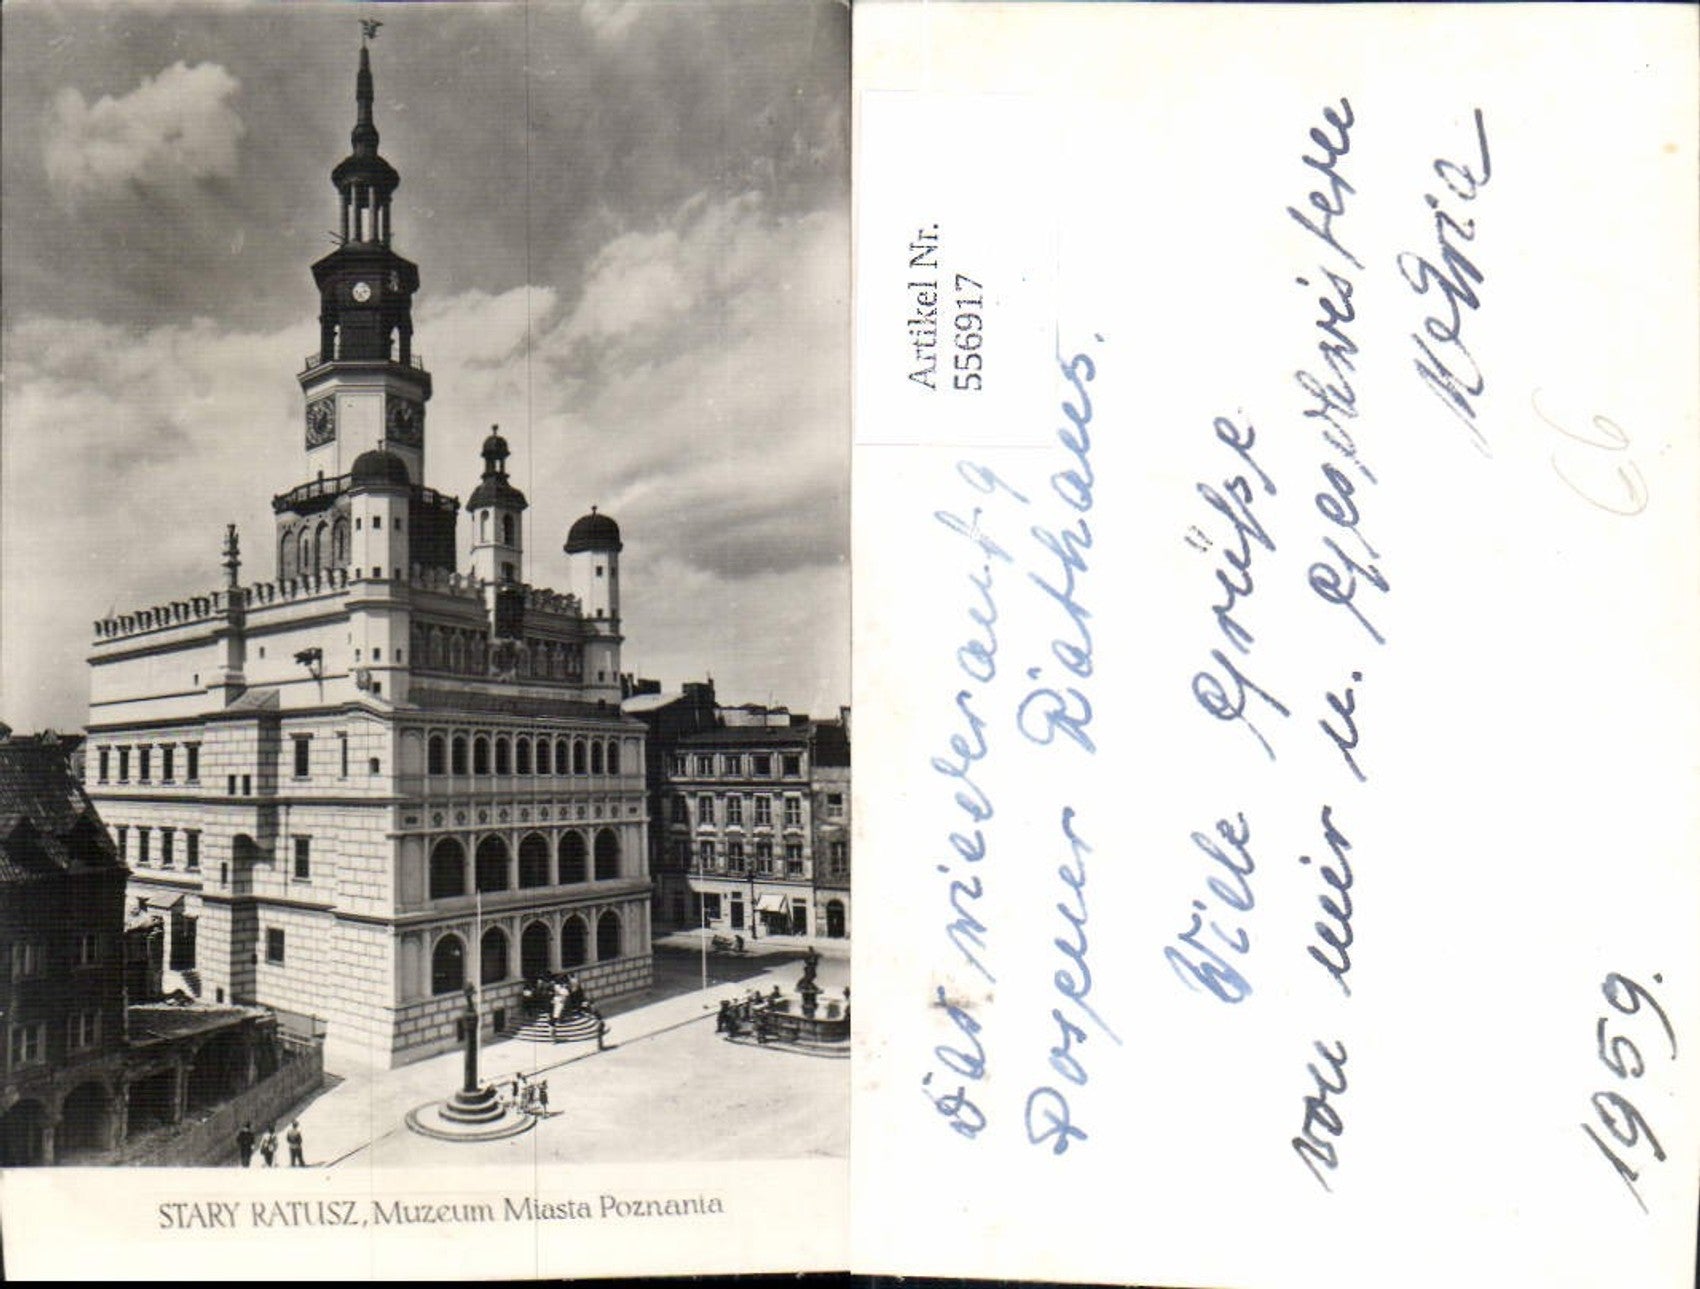 STARY RATUSZ, Muzeum Miasta Poznania
Artikel Nr.
556917
Das wiederaufg
Posener Rathaus.
Viele Grüße
von mir u. Geschwistern
1959.
66